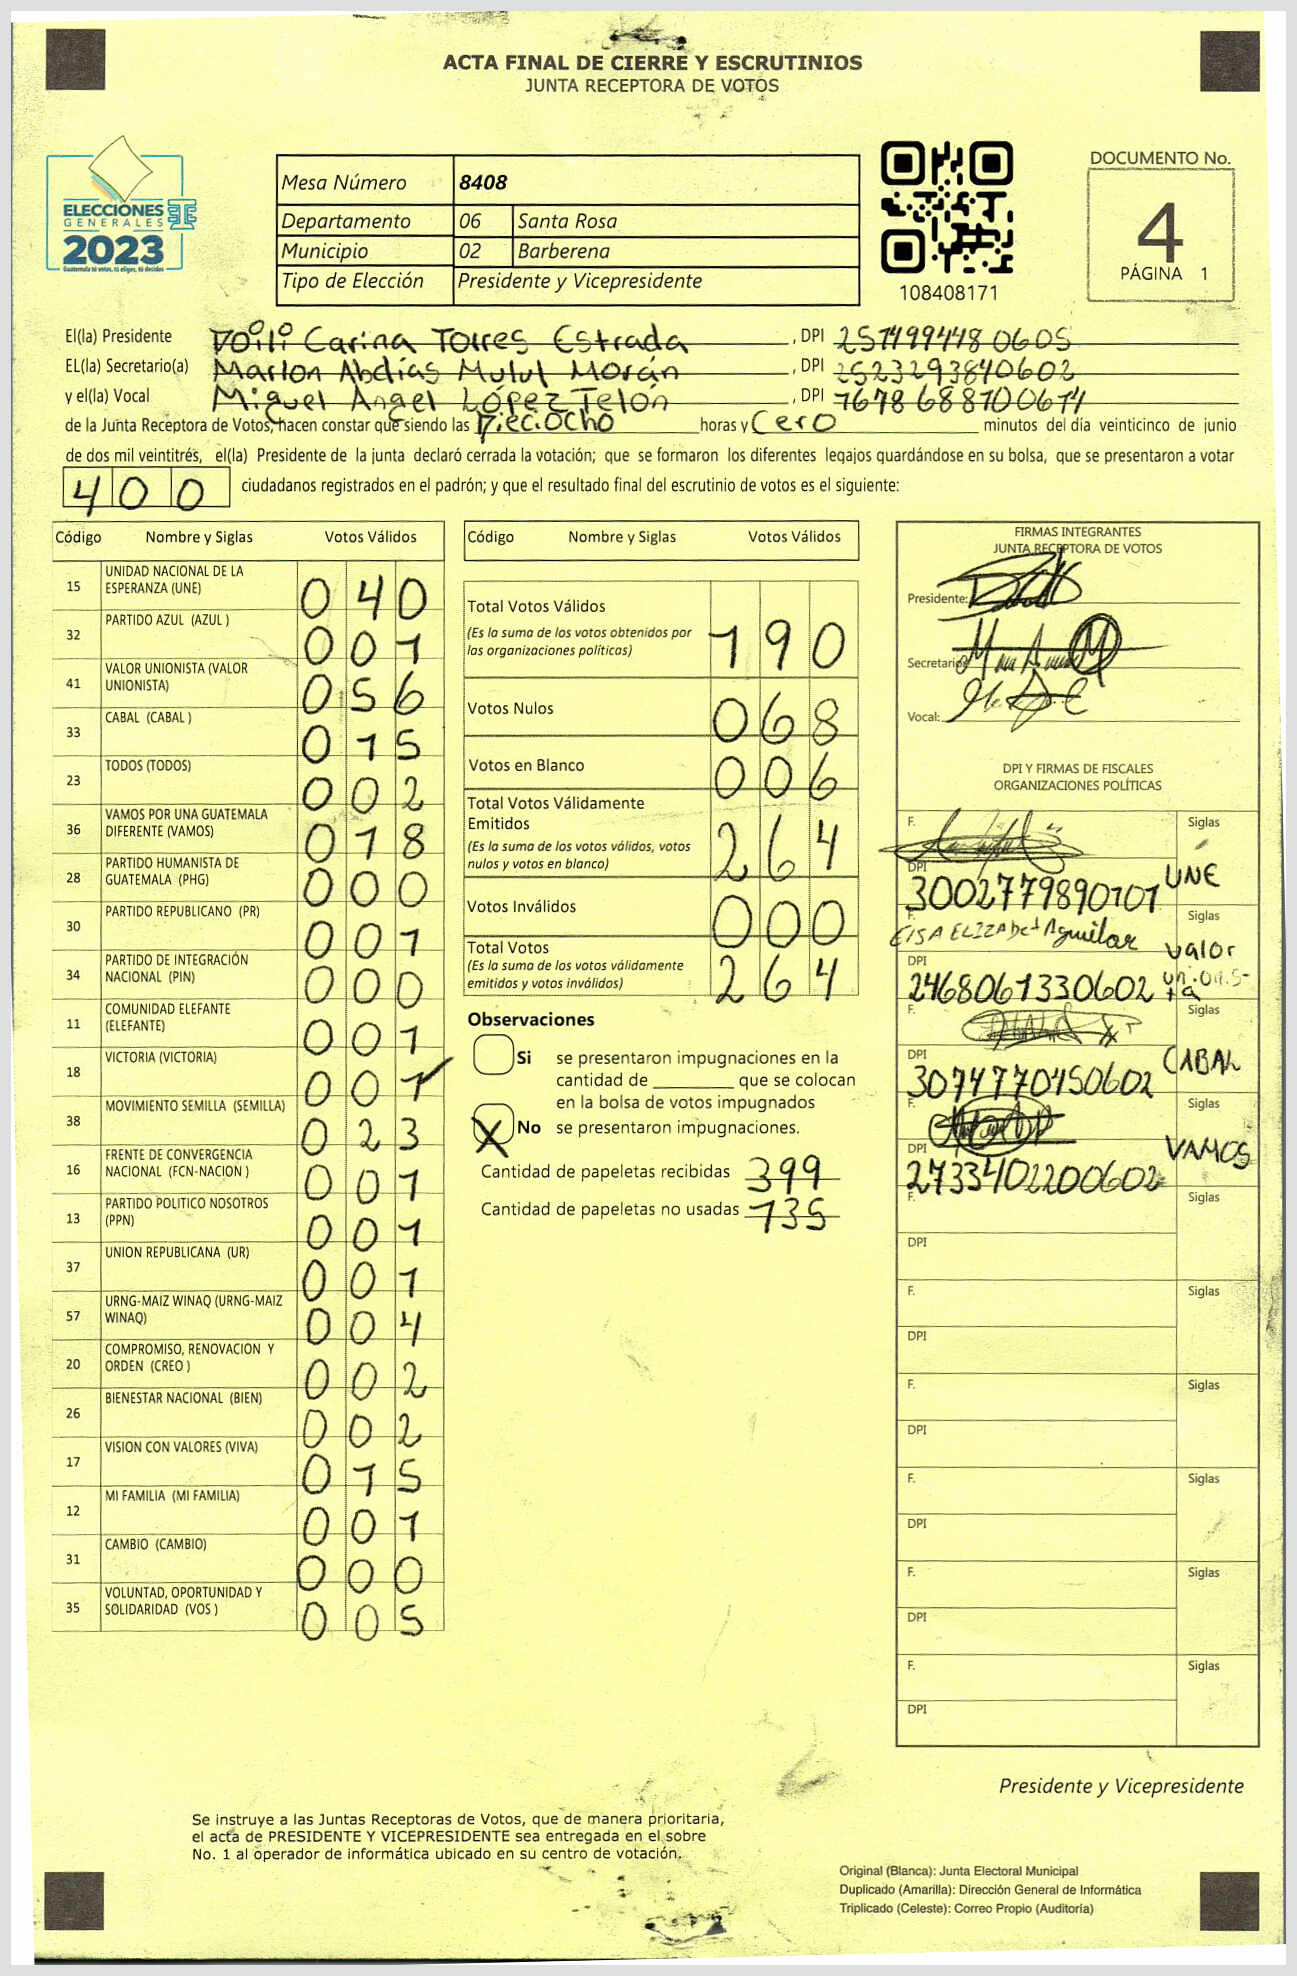 ACTA FINAL DE CIERRE Y ESCRUTINIOS
JUNTA RECEPTORA DE VOTOS
ELECCIONES
GENERALES
2023
Guatemala tú votas, tú eliges, tú decides
Mesa Número 8408
Departamento 06 Santa Rosa
Municipio 02 Barberena
Tipo de Elección Presidente y Vicepresidente
108408171
DOCUMENTO No.
4
PÁGINA 1
El(la) Presidente Doili Carina Torres Estrada, DPI 2517994480605
EL(la) Secretario(a) Marlon Abdías Mulul Morán, DPI 2523293840602
y el(la) Vocal Miguel Angel López Telón, DPI 1678688100614
de la Junta Receptora de Votos, hacen constar que siendo las Dieciocho horas y Cero minutos del día veinticinco de junio
de dos mil veintitrés, el(la) Presidente de la junta declaró cerrada la votación; que se formaron los diferentes legajos guardándose en su bolsa, que se presentaron a votar
400 ciudadanos registrados en el padrón; y que el resultado final del escrutinio de votos es el siguiente:
Código Nombre y Siglas Votos Válidos
15 UNIDAD NACIONAL DE LA ESPERANZA (UNE) 040
32 PARTIDO AZUL (AZUL ) 001
41 VALOR UNIONISTA (VALOR UNIONISTA) 056
33 CABAL (CABAL ) 015
23 TODOS (TODOS) 002
36 VAMOS POR UNA GUATEMALA DIFERENTE (VAMOS) 018
28 PARTIDO HUMANISTA DE GUATEMALA (PHG) 000
30 PARTIDO REPUBLICANO (PR) 001
34 PARTIDO DE INTEGRACIÓN NACIONAL (PIN) 000
11 COMUNIDAD ELEFANTE (ELEFANTE) 001
18 VICTORIA (VICTORIA) 001
38 MOVIMIENTO SEMILLA (SEMILLA) 023
16 FRENTE DE CONVERGENCIA NACIONAL (FCN-NACION ) 001
13 PARTIDO POLITICO NOSOTROS (PPN) 001
37 UNION REPUBLICANA (UR) 001
57 URNG-MAIZ WINAQ (URNG-MAIZ WINAQ) 004
20 COMPROMISO, RENOVACION Y ORDEN (CREO ) 002
26 BIENESTAR NACIONAL (BIEN) 002
17 VISION CON VALORES (VIVA) 015
12 MI FAMILIA (MI FAMILIA) 001
31 CAMBIO (CAMBIO) 000
35 VOLUNTAD, OPORTUNIDAD Y SOLIDARIDAD (VOS ) 005
Código Nombre y Siglas Votos Válidos
Total Votos Válidos 190
(Es la suma de los votos obtenidos por
las organizaciones políticas)
Votos Nulos 068
Votos en Blanco 006
Total Votos Válidamente
Emitidos 264
(Es la suma de los votos válidos, votos
nulos y votos en blanco)
Votos Inválidos 000
Total Votos 264
(Es la suma de los votos válidamente
emitidos y votos inválidos)
Observaciones
Si se presentaron impugnaciones en la
cantidad de ________ que se colocan
en la bolsa de votos impugnados
X No se presentaron impugnaciones.
Cantidad de papeletas recibidas 399
Cantidad de papeletas no usadas 135
FIRMAS INTEGRANTES
JUNTA RECEPTORA DE VOTOS
Presidente:
Secretario:
Vocal:
DPI Y FIRMAS DE FISCALES
ORGANIZACIONES POLÍTICAS
F. Siglas
DPI 3002779890101 UNE
F. Elsa Elizabet Aguilar Siglas
DPI 2468061330602 Valor unionista
F. Siglas
DPI 3074770450602 CABAL
F. Siglas
DPI 2733402200602 VAMOS
F. Siglas
DPI
F. Siglas
DPI
F. Siglas
DPI
F. Siglas
DPI
F. Siglas
DPI
F. Siglas
DPI
Presidente y Vicepresidente
Se instruye a las Juntas Receptoras de Votos, que de manera prioritaria,
el acta de PRESIDENTE Y VICEPRESIDENTE sea entregada en el sobre
No. 1 al operador de informática ubicado en su centro de votación.
Original (Blanca): Junta Electoral Municipal
Duplicado (Amarilla): Dirección General de Informática
Triplicado (Celeste): Correo Propio (Auditoría)